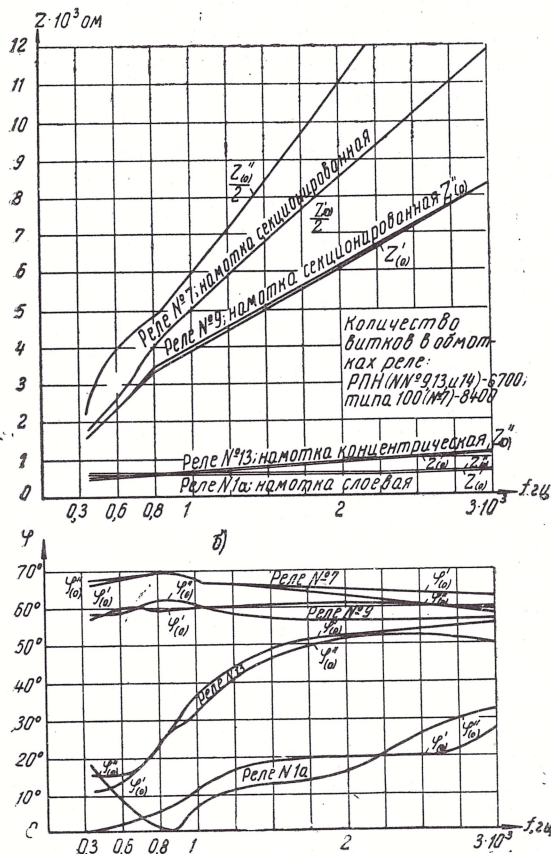 Z·10³ ом
12
11
10
9
8
7
6
5
4
3
2
1
0
Z″(0)
2
Реле №7; намотка секционированная
Z′(0)
2
Реле №9; намотка секционированная Z″(0)
Z′(0)
Количество
витков в обмот-
ках реле:
РПН(№№9,13и14)-6700;
типа 100(№7)-8400
Реле №13; намотка концентрическая, Z″(0)
Z′(0) Z″(0)
Реле N1а; намотка слоевая Z(0)
0,3 0,6 0,8 1 2 3·10³ f,гц
φ
б)
70°
60°
50°
40°
30°
20°
10°
0
φ″(0)
φ′(0)
φ″(0)
φ′(0)
Реле №7
φ′(0)
φ″(0)
Реле №9
φ′(0)
φ″(0)
Реле N13
φ″(0)
φ′(0)
Реле N1а
φ′(0)
φ″(0)
0,3 0,6 0,8 1 2 3·10³ f,гц